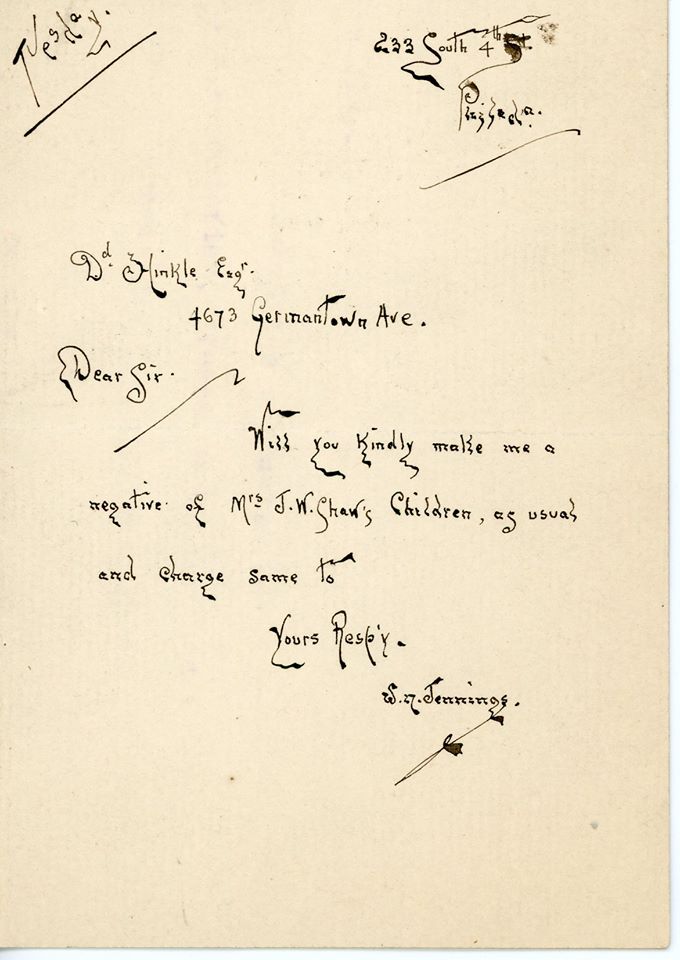 Tuesday.
233 South 4th St.
Philada.
Dd. Hinkle Esqr.
4673 Germantown Ave.
Dear Sir.
Will you kindly make me a
negative of Mrs J.W. Shaw's Children, as usual
and charge same to
Yours Resp'y.
W.N. Jennings.